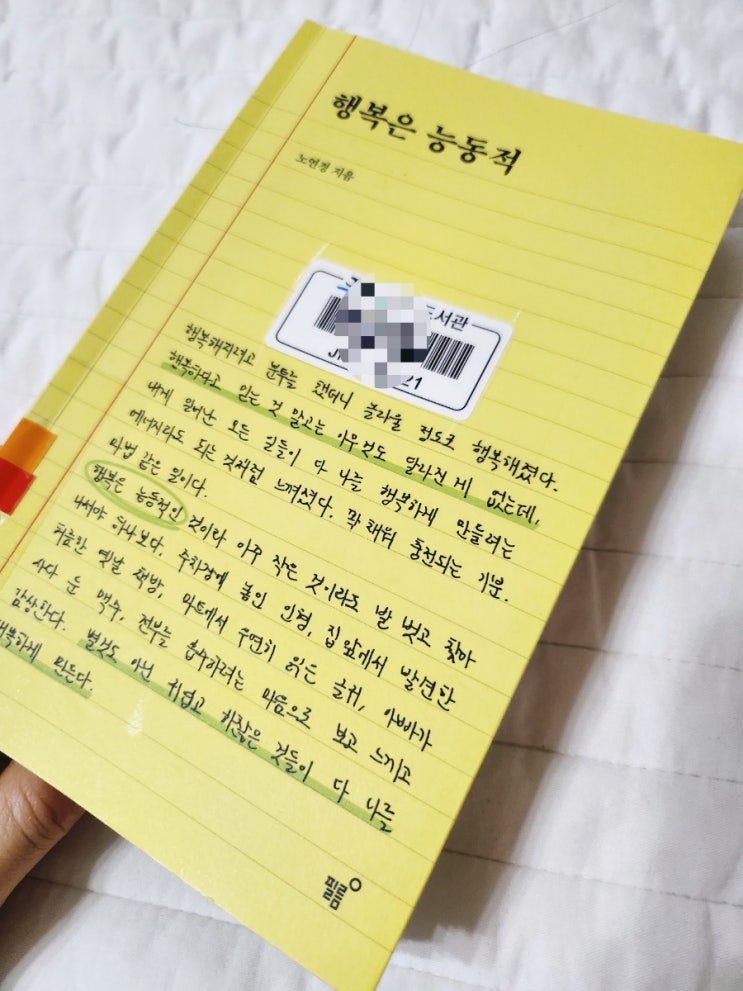 행복은 능동적
노연경 지음
도서관
21
행복해지려고 분투를 했더니 놀라울 정도로 행복해졌다.
행복하다고 믿는 것 말고는 아무것도 달라진 게 없는데,
내게 일어난 모든 일들이 다 나를 행복하게 만들려는
에너지라도 되는 것처럼 느껴졌다. 꽉 채워 충전되는 기분.
마법 같은 일이다.
행복은 능동적인 것이라 아주 작은 것이라도 발 벗고 찾아
나서야 하나보다. 주차장에 놓인 인형, 집 앞에서 발견한
허름한 옛날 책방, 마트에서 우연히 읽은 글귀, 아빠가
사다 둔 맥주, 전부를 흡수하려는 마음으로 보고 느끼고
감상한다. 별것도 아닌 귀엽고 하찮은 것들이 다 나를
행복하게 만든다.
필름